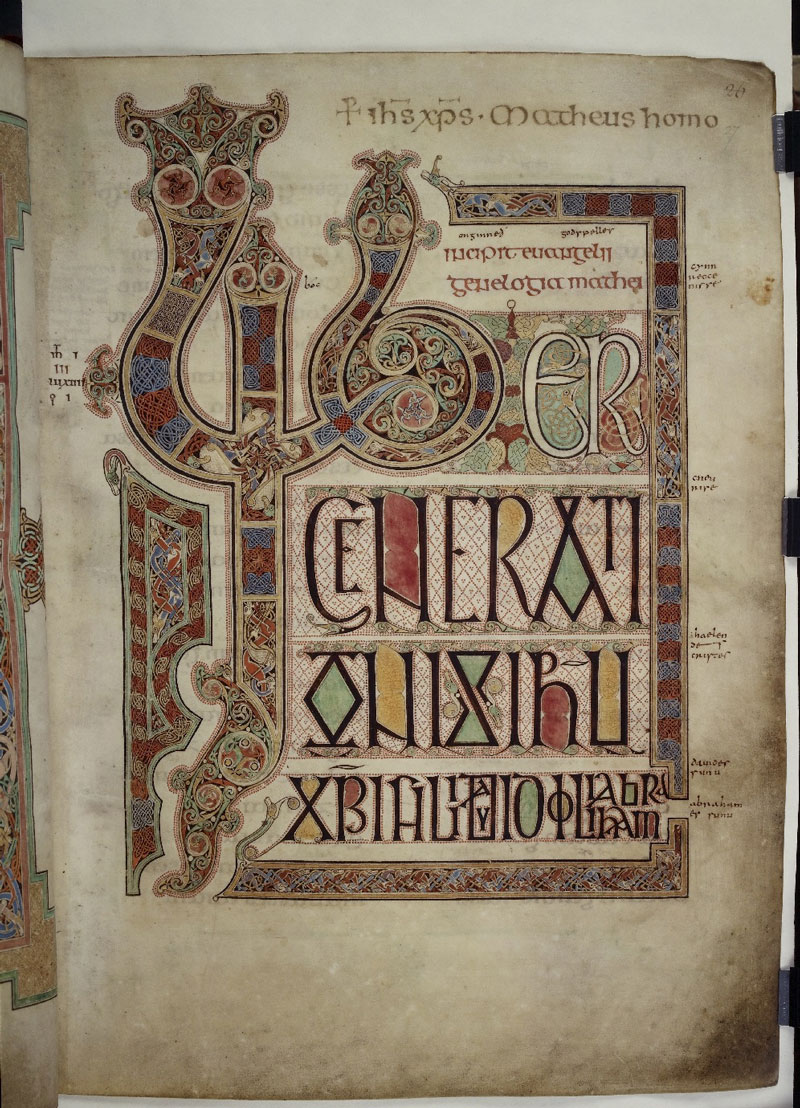 26
+ ihs xps · Matheus homo
onginneð godspelles
incipit evangelii
genelogia mathei
boc
LIBER
GENERATI
ONIS IHU
XPI FILII DAVID FILII ABRAHAM
haelen
des
cristes
dauides
sunu
abraham
es sunu